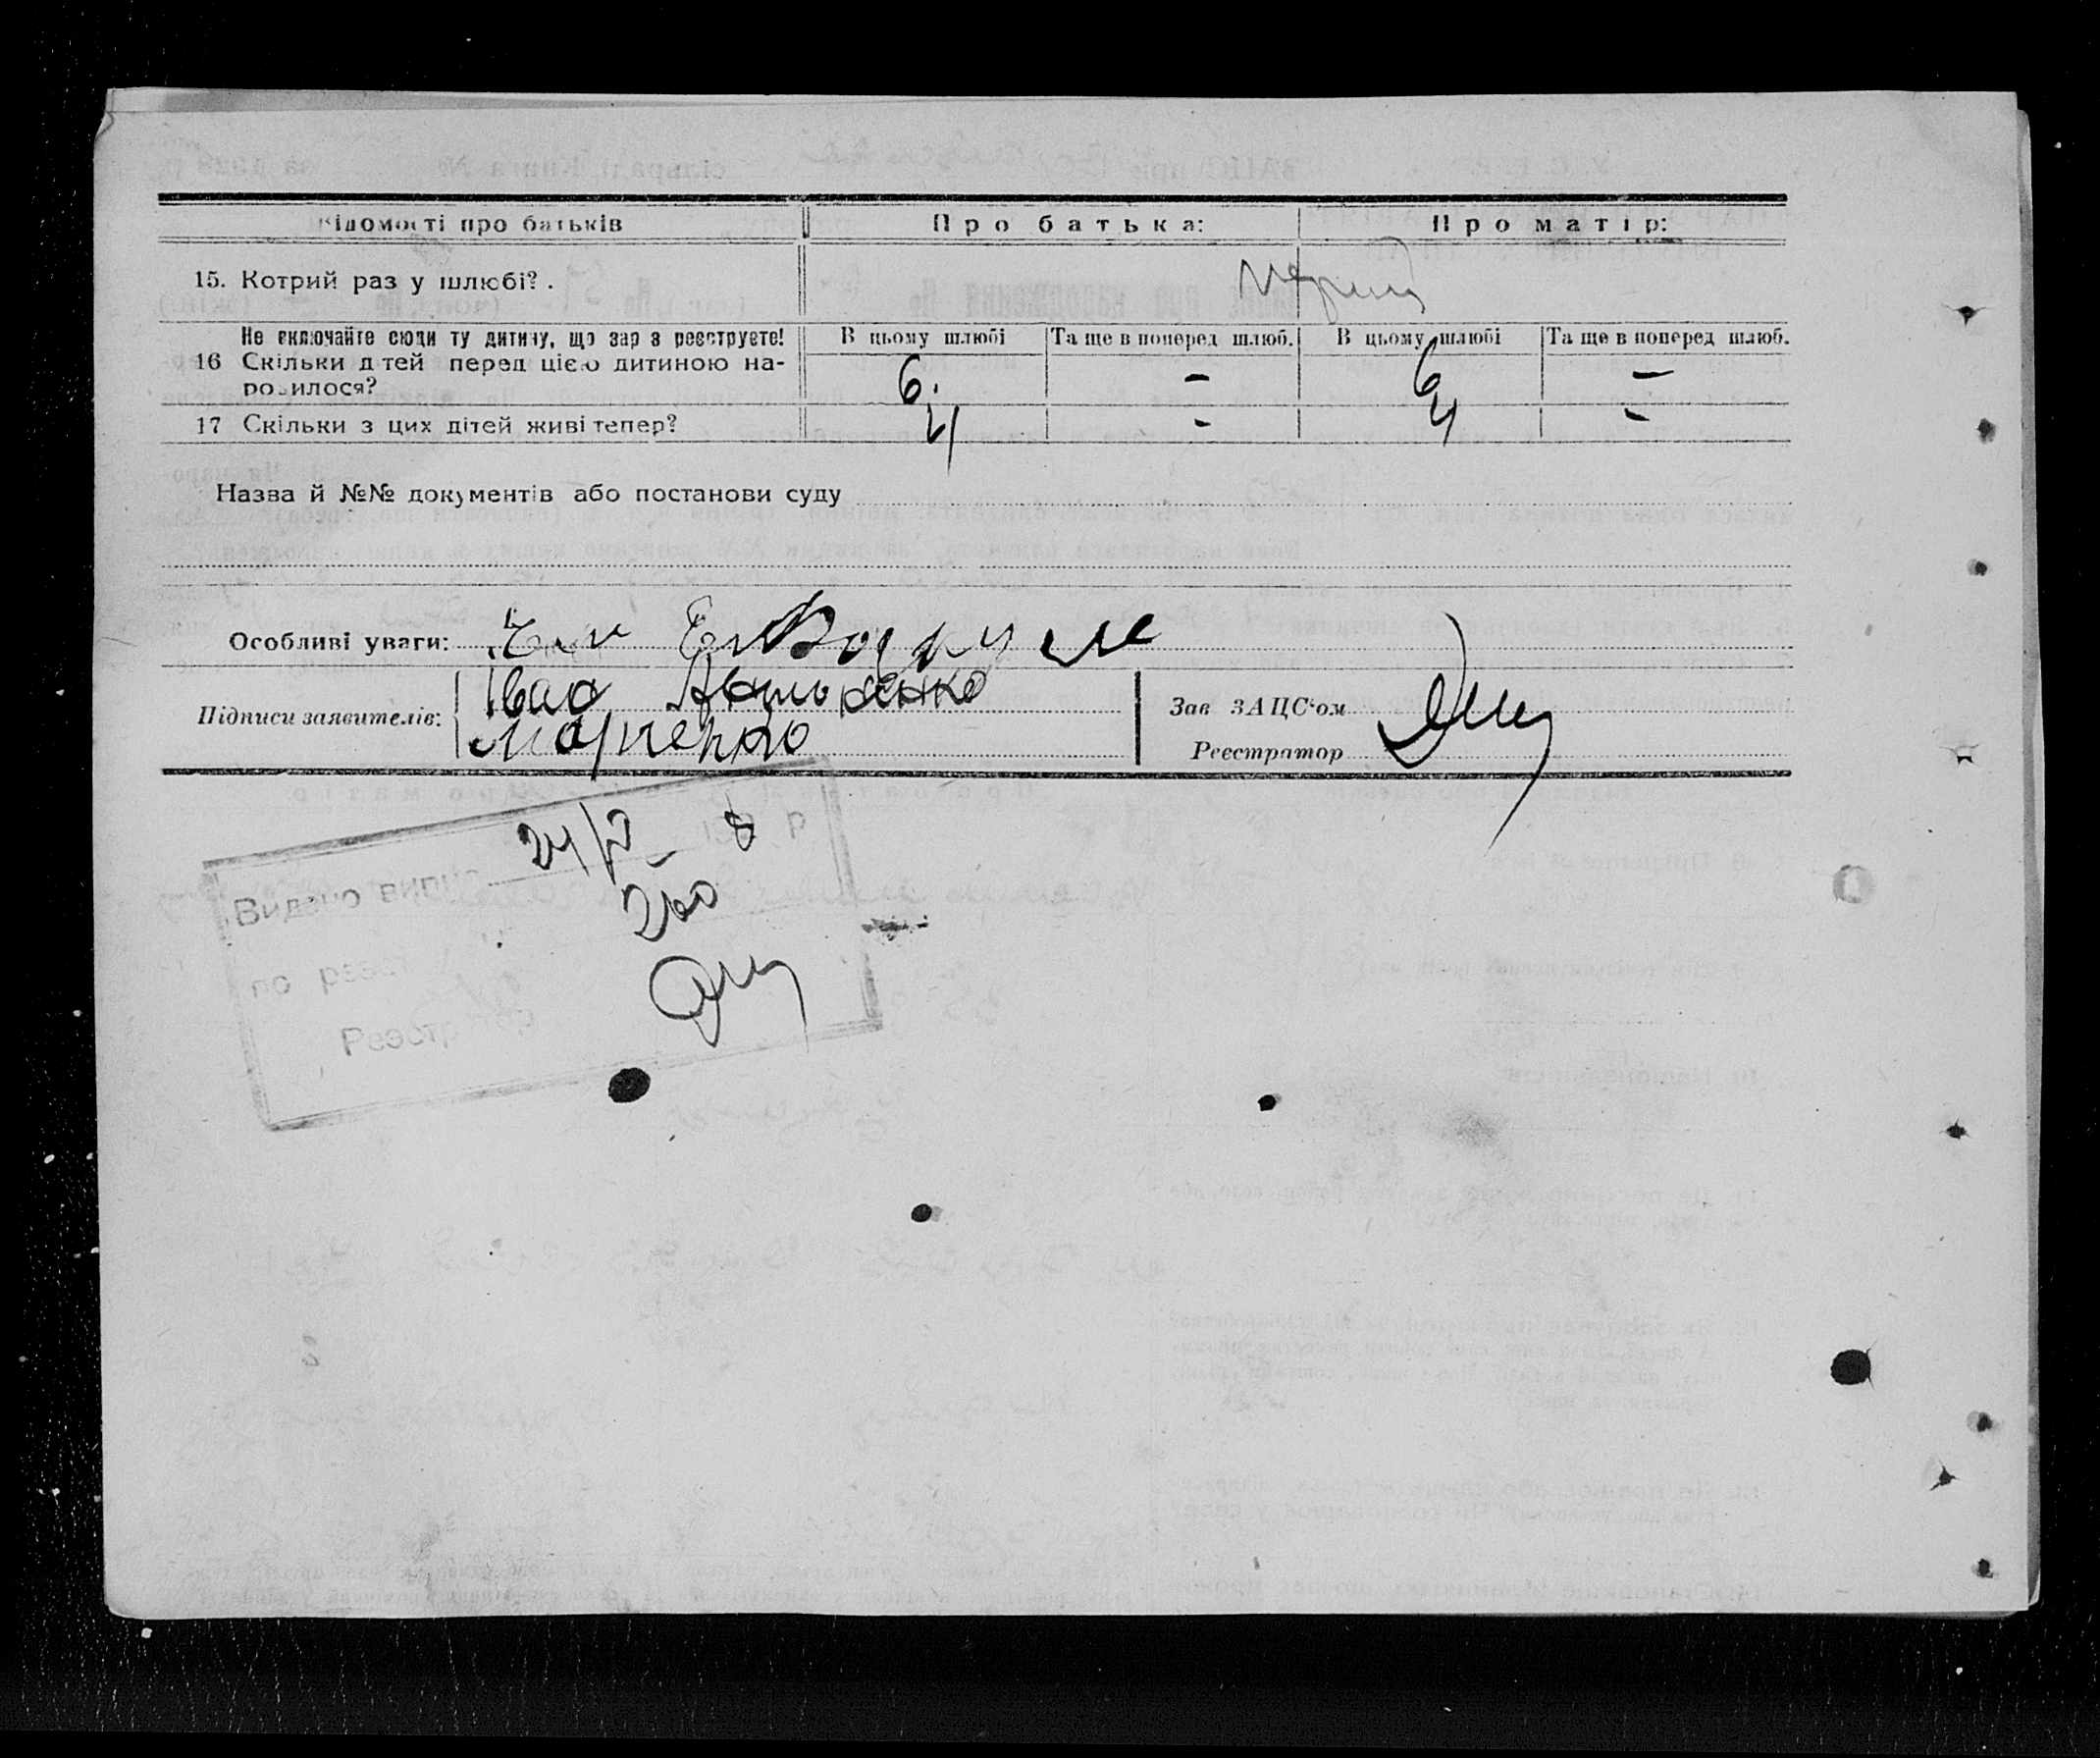 Відомості про батьків Про батька: Про матір:
15. Котрий раз у шлюбі?. перший
Не включайте сюди ту дитину, що зараз реєструєте! В цьому шлюбі Та ще в поперед шлюб. В цьому шлюбі Та ще в поперед шлюб.
16 Скільки дітей перед цією дитиною на-
родилося? 6. – 6 –
17 Скільки з цих дітей живі тепер? 4 - 4 -
Назва й №№ документів або постанови суду
Особливі уваги:
Підписи заявителів: Іван
Марченко
Зав ЗАЦС'ом
Реєстратор
Видано випис 24/V 8 р
по реєст 260
Реєстратор